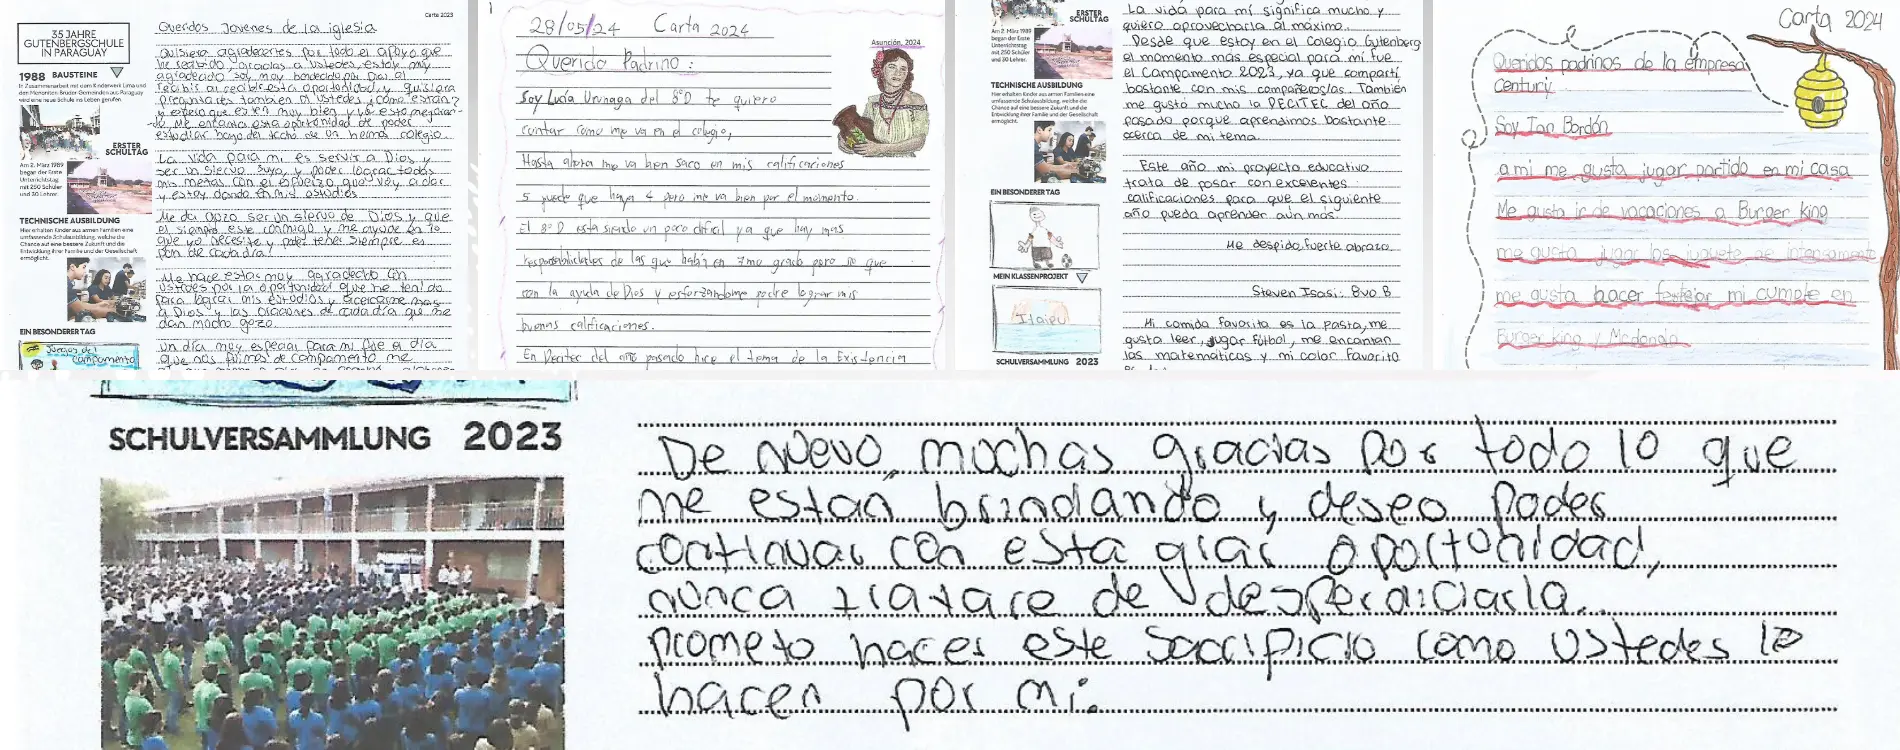 Carta 2023
35 JAHRE
GUTENBERGSCHULE
IN PARAGUAY
1988 BAUSTEINE
In Zusammenarbeit mit dem Kinderwerk Lima und
den Mennoniten-Brüder-Gemeinden aus Paraguay
wird eine neue Schule ins Leben gerufen
ERSTER
SCHULTAG
Am 2. März 1989
began der Erste
Unterrichtstag
mit 250 Schüler
und 30 Lehrer.
TECHNISCHE AUSBILDUNG
Hier erhalten Kinder aus armen Familien eine
umfassende Schulausbildung, welche die
Chance auf eine bessere Zukunft und die
Entwicklung ihrer Familie und der Gesellschaft
ermöglicht.
EIN BESONDERER TAG
Juegos del
campamento
Queridos Jovenes de la iglesia
Quisiera agradecerles por todo el apoyo que
he recibido, gracias a ustedes, estoy muy
agradecido soy muy bendecido por Dios al
recibir esta oportunidad y quisiera
preguntarles tambien a ustedes ¿como estan?
y espero que esten muy bien y
Me encanta esta oportunidad de poder
estudiar bajo del techo de un hermos colegio
La vida para mi es servir a Dios y
ser un siervo suyo, y poder lograr todas
mis metas con el esfuerzo que voy a dar
y estoy dando en mis estudios
Me da gozo ser un siervo de Dios y que
el siempre este conmigo y me ayude en lo
que yo necesite y poder tener siempre el
pan de cada dia!
Me hace estar muy agradecido con
ustedes por la oportunidad que he tenido
para lograr mis estudios y acercarme mas
a Dios y las oraciones de cada dia que me
dan mucho gozo.
Un dia muy especial para mi fue el dia
que nos fuimos de campamento me
28/05/24 Carta 2024
Asunción, 2024
Querido Padrino:
Soy Lucía Urunaga del 8°D te quiero
contar como me va en el colegio,
Hasta ahora me va bien saco en mis calificaciones
5 puede que haya 4 pero me va bien por el momento.
El 8°D esta siendo un poco dificil ya que hay mas
responsabilidades de las que habia en 7mo grado pero se que
con la ayuda de Dios y esforzandome podre lograr mis
buenas calificaciones.
En Pecitec del año pasado hice el tema de la Existencia
ERSTER
SCHULTAG
Am 2. März 1989
began der Erste
Unterrichtstag
mit 250 Schüler
und 30 Lehrer.
TECHNISCHE AUSBILDUNG
Hier erhalten Kinder aus armen Familien eine
umfassende Schulausbildung, welche die
Chance auf eine bessere Zukunft und die
Entwicklung ihrer Familie und der Gesellschaft
ermöglicht.
EIN BESONDERER TAG
MEIN KLASSENPROJEKT
Itaipu
SCHULVERSAMMLUNG 2023
La vida para mí significa mucho y
quiero aprovecharla al máximo.
Desde que estoy en el Colegio Gutenberg
el momento más especial para mí fue
el Campamento 2023, ya que compartí
bastante con mis compañeros/as. También
me gustó mucho la PECITEC del año
pasado porque aprendimos bastante
acerca de mi tema.
Este año mi proyecto educativo
trata de pasar con excelentes
calificaciones para que el siguiente
año pueda aprender aún más.
Me despido, fuerte abrazo.
Steven Isasi: 8vo B
Mi comida favorita es la pasta, me
gusta leer, jugar fútbol, me encantan
las matemáticas y mi color favorito
Carta 2024
Queridos padrinos de la empresa
Century
Soy Ian Bordón
a mi me gusta jugar partido en mi casa
Me gusta ir de vacaciones a Burger king
me gusta jugar los juguete de intensamente
me gusta hacer festejar mi cumple en
Burger king y Mcdonals
SCHULVERSAMMLUNG 2023
De nuevo, muchas gracias por todo lo que
me estan brindando y deseo poder
continuar con esta gran oportunidad,
nunca tratare de desperdiciarla.
prometo hacer este sacrificio como ustedes lo
hacen por mi.